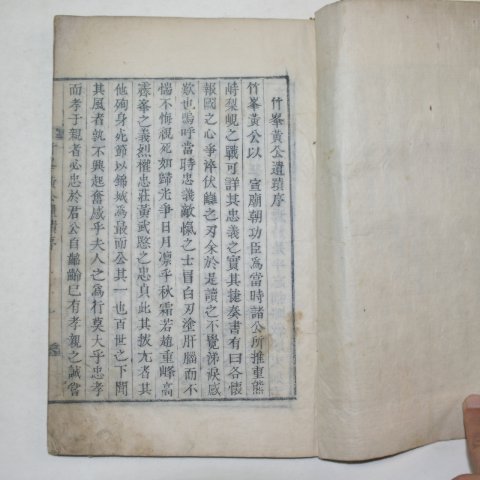 竹峯黃公遺蹟序
竹峯黃公以 宣廟朝功臣爲當時諸公所推重熊
峙梨峴之戰可詳其忠義之實其捷奏書有曰各懷
報國之心爭淬伏 之刃余於是讀之不覺涕淚感
歎也嗚呼當時忠義敵愾之士冒白刃塗肝腦而不
惴不悔視死如歸光爭日月凛乎秋霜若趙重峰高
霽峯之義烈權忠莊黃武愍之忠貞此其拔尤者其
他殉身死節以錦城爲最而公其一也百世之下聞
其風者孰不興起奮感乎夫人之爲行莫大乎忠孝
而孝于親者必忠於君公自齠齡已有孝親之誠嘗